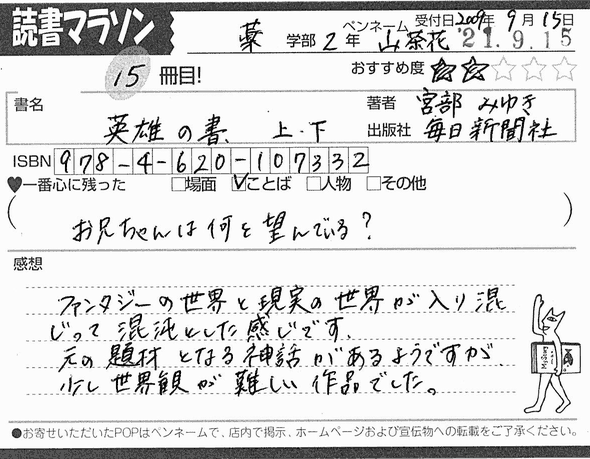 読書マラソン
薬 学部 2年 ペンネーム 山茶花 受付日2009年9月15日
'21.9.15
15 冊目! おすすめ度 ★★☆☆☆
書名 著者 宮部 みゆき
英雄の書 上・下 出版社 毎日新聞社
ISBN 978-4-620-107332
♥一番心に残った □場面 ☑ことば □人物 □その他
(お兄ちゃんは何を望んでいる?)
感想
ファンタジーの世界と現実の世界が入り混
じって混沌とした感じです。
元の題材となる神話があるようですが、
少し世界観が難しい作品でした。
●お寄せいただいたPOPはペンネームで、店内で掲示、ホームページおよび宣伝物への転載をご了承ください。